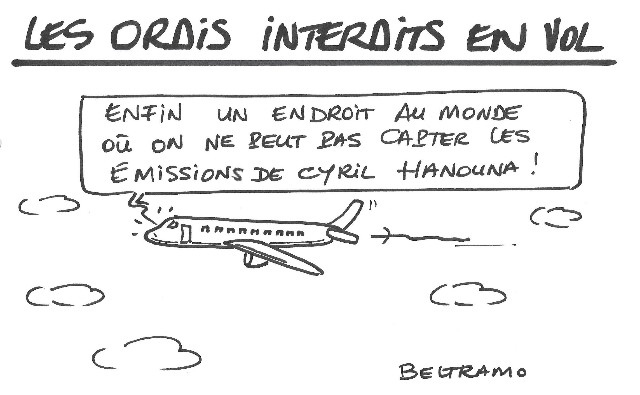 LES ORDIS INTERDITS EN VOL
ENFIN UN ENDROIT AU MONDE
OÙ ON NE PEUT PAS CAPTER LES
ÉMISSIONS DE CYRIL HANOUNA !
BELTRAMO